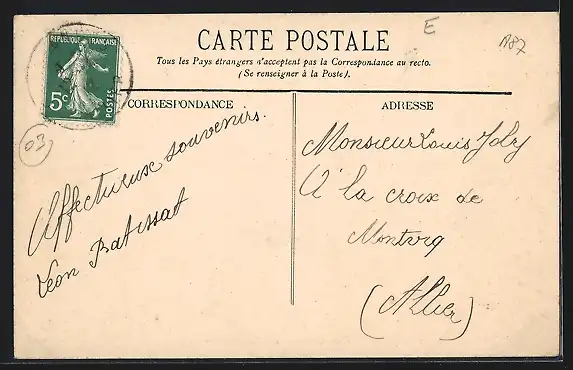 E
A87
REPUBLIQUE FRANÇAISE
5c POSTES
CARTE POSTALE
Tous les Pays étrangers n'acceptent pas la Correspondance au recto.
(Se renseigner à la Poste).
CORRESPONDANCE
ADRESSE
03
Affectueux souvenirs.
Léon Batissat
Monsieur Louis Joly
A la croix de
Montvicq
(Allier)